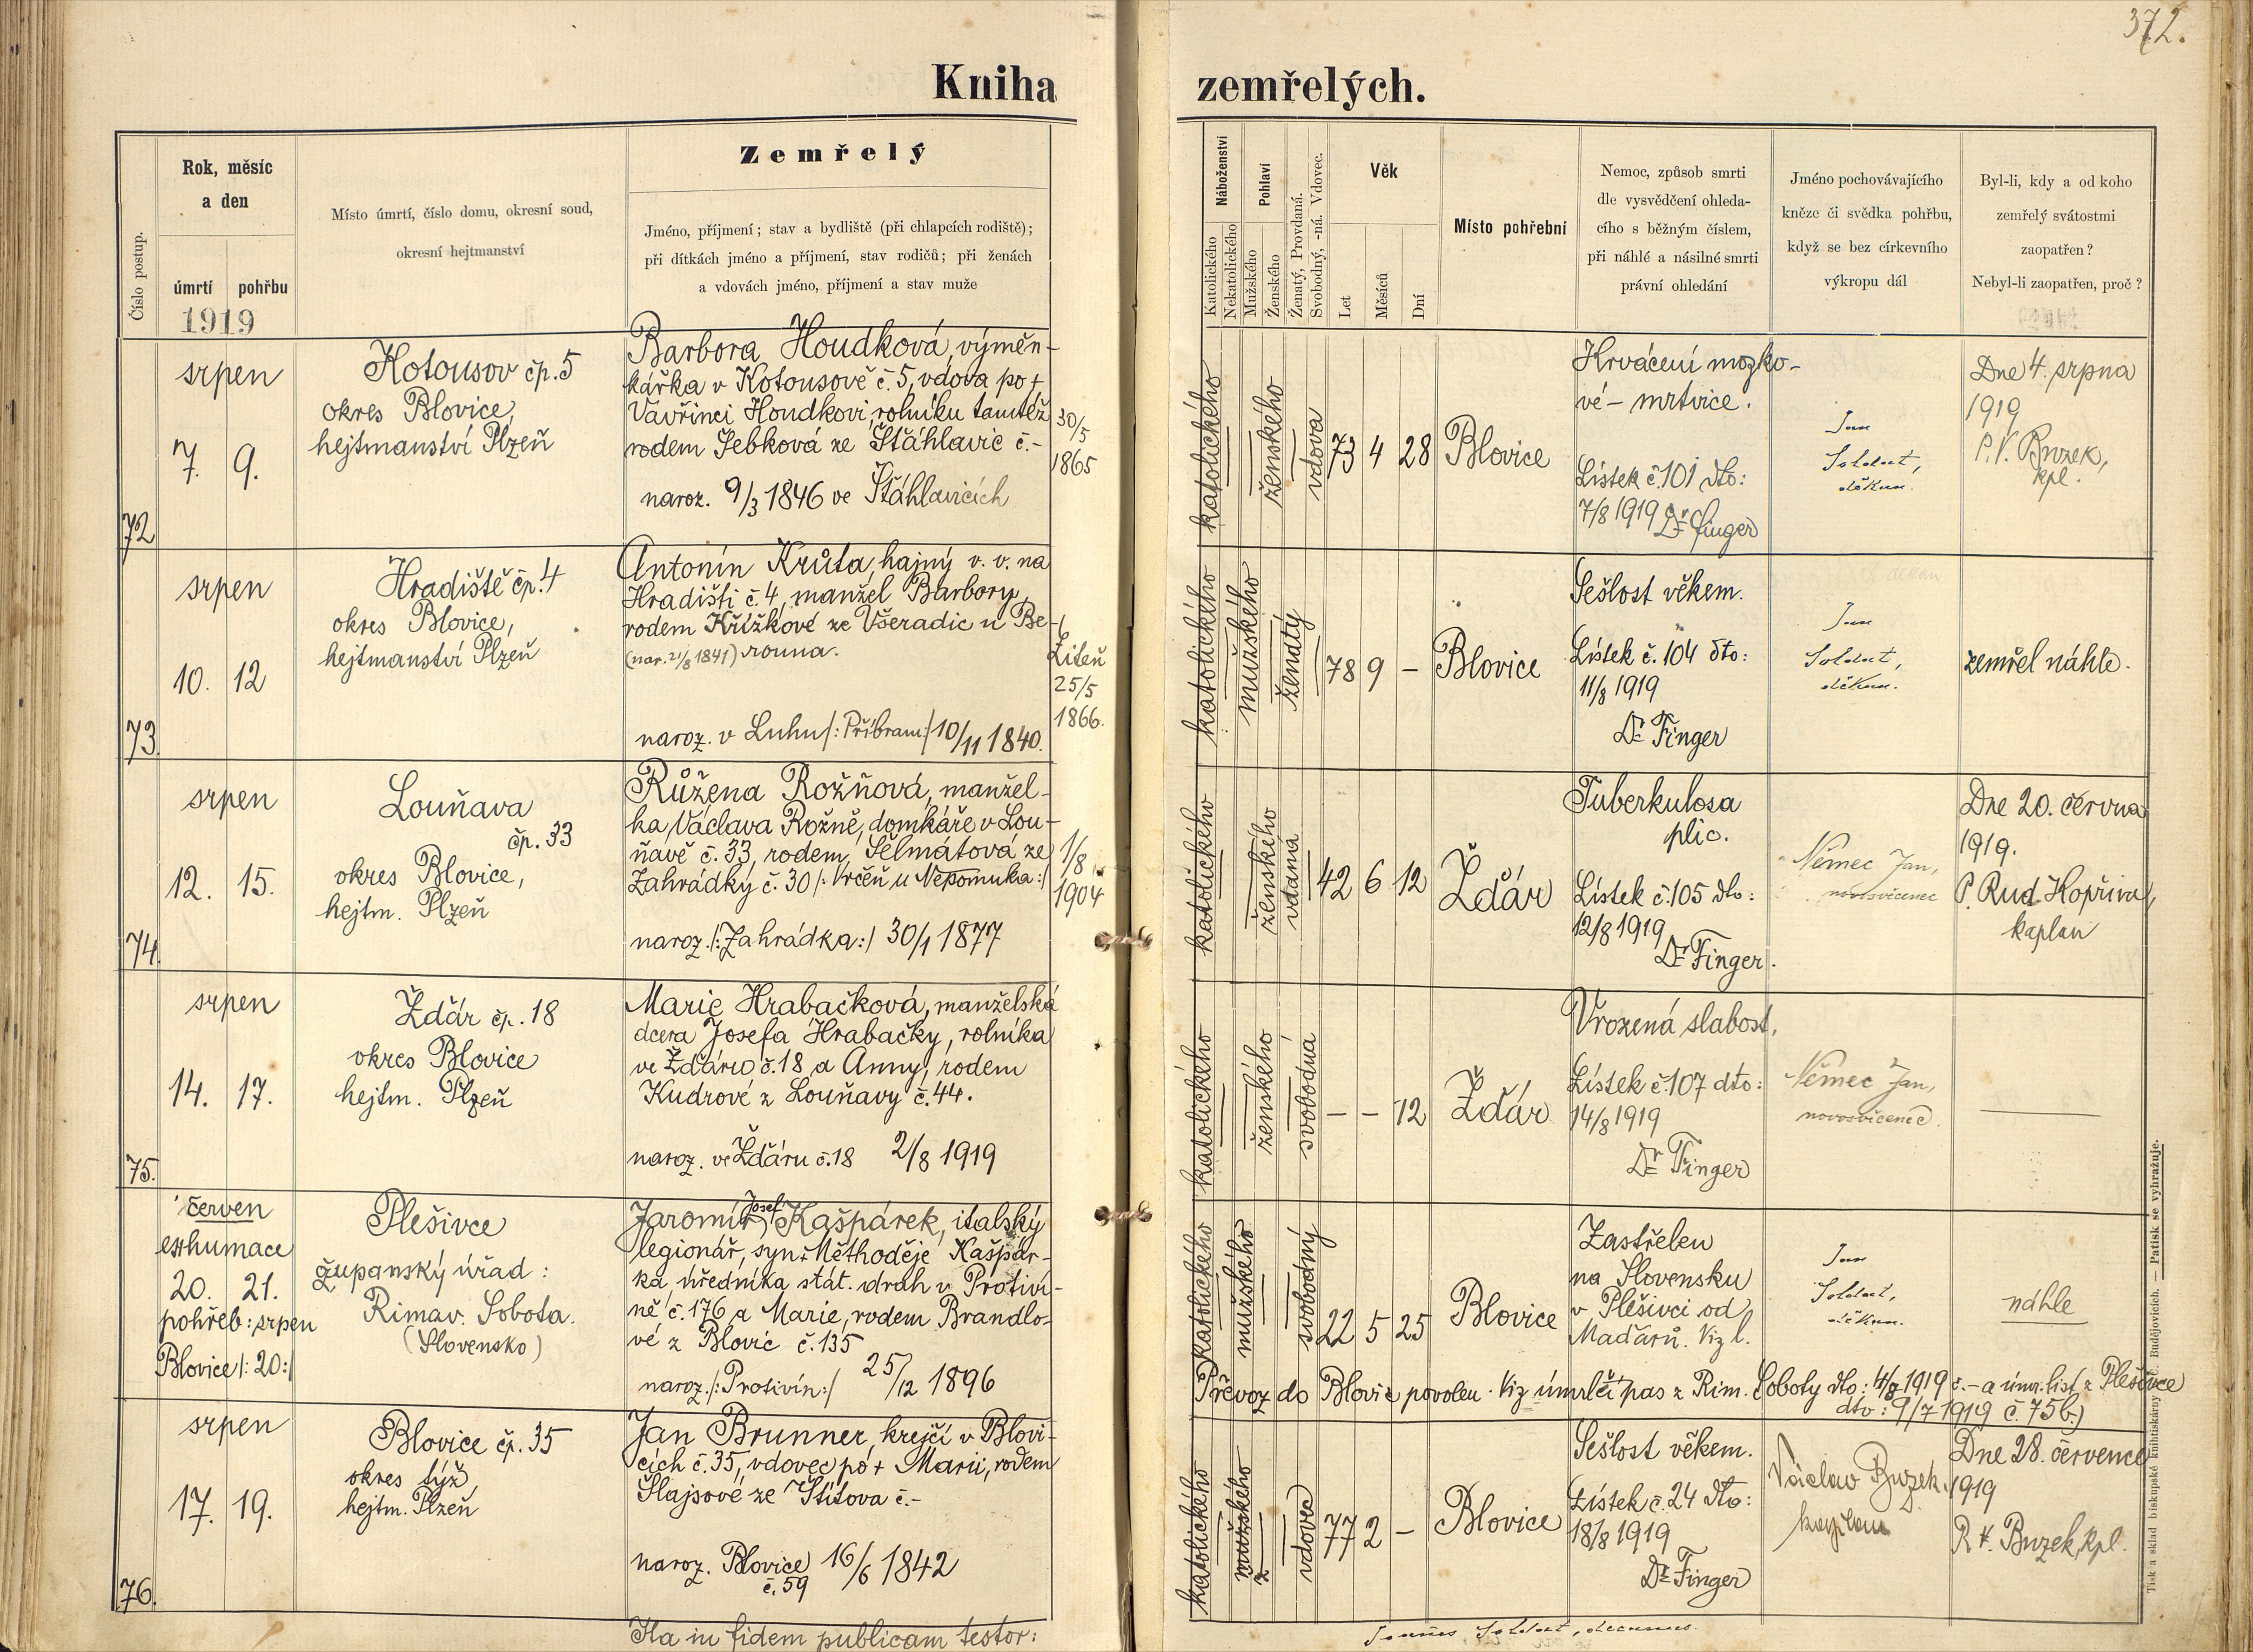 372.
Kniha zemřelých.
Číslo postup.
Rok, měsíc
a den
úmrtí
pohřbu
1919
Místo úmrtí, číslo domu, okresní soud,
okresní hejtmanství
Zemřelý
Jméno, příjmení; stav a bydliště (při chlapcích rodiště);
při dítkách jméno a příjmení, stav rodičů; při ženách
a vdovách jméno, příjmení a stav muže
Náboženství
Katolického
Nekatolického
Pohlaví
Mužského
Ženského
Ženatý, Provdaná.
Svobodný, -ná. Vdovec.
Věk
Let
Měsíců
Dní
Místo pohřební
Nemoc, způsob smrti
dle vysvědčení ohleda-
cího s běžným číslem,
při náhlé a násilné smrti
právní ohledání
Jméno pochovávajícího
kněze či svědka pohřbu,
když se bez církevního
výkropu dál
Byl-li, kdy a od koho
zemřelý svátostmi
zaopatřen?
Nebyl-li zaopatřen, proč?
72
srpen
7. 9.
Kotousov čp. 5
okres Blovice,
hejtmanství Plzeň
Barbora Houdková, výměn-
kářka v Kotousově č. 5, vdova po +
Vavřinci Houdkovi, rolníku tamtéž
rodem Šebková ze Štáhlavic č. -
naroz. 9/3 1846 ve Štáhlavicích
30/5
1865
katolického
ženského
vdova
73 4 28
Blovice
Krvácení mozko-
vé - mrtvice.
Lístek č. 101 dto:
7/8 1919 Dr Finger
Jan
Soldat,
děkan.
Dne 4. srpna
1919
P. V. Buzek,
kpl.
73.
srpen
10. 12
Hradiště čp. 4
okres Blovice,
hejtmanství Plzeň
Antonín Krůta, hajný v. v. na
Hradišti č. 4, manžel Barbory,
rodem Křížkové ze Všeradic u Be-
(nar. 21/8 1841) rouna.
naroz. v Luhu /: Příbram:/ 10/11 1840.
Liteň
25/5
1866.
katolického
mužského
ženatý
78 9 -
Blovice
Sešlost věkem.
Lístek č. 104 dto:
11/8 1919
Dr Finger
Jan
Soldat,
děkan.
zemřel náhle.
74.
srpen
12. 15.
Louňava
čp. 33
okres Blovice,
hejtm. Plzeň
Růžena Rožňová, manžel-
ka Václava Rožně, domkáře v Lou-
ňavě č. 33, rodem Šelmátová ze
Zahrádky č. 30 /: Vrčeň u Nepomuka:/
naroz. /: Zahrádka:/ 30/1 1877
1/8
1904
katolického
ženského
vdaná
42 6 12
Žďár
Tuberkulosa
plic.
Lístek č. 105 dto:
12/8 1919
Dr Finger.
Němec Jan,
novosvěcenec
Dne 20. června
1919.
P. Rud. Kopřiva,
kaplan
75.
srpen
14. 17.
Žďár čp. 18
okres Blovice
hejtm. Plzeň
Marie Hrabačková, manželská
dcera Josefa Hrabačky, rolníka
ve Žďáru č. 18 a Anny, rodem
Kudrové z Louňavy č. 44.
naroz. ve Žďáru č. 18 2/8 1919
katolického
ženského
svobodná
- - 12
Žďár
Vrozená slabost,
Lístek č. 107 dto:
14/8 1919
Dr Finger
Němec Jan,
novosvěcenec.
červen
exhumace
20. 21.
pohřeb: srpen
Blovice /: 20:/
Plešivce
županský úřad:
Rimav. Sobota.
(Slovensko)
Josef
Jaromír Kašpárek, italský
legionář, syn + Methoděje Kašpár-
ka, úředníka stát. drah v Protiví-
ně č. 176 a Marie, rodem Brandlo-
vé z Blovic č. 135
naroz. /: Protivín:/ 25/12 1896
katolického
mužského
svobodný
22 5 25
Blovice
Zastřelen
na Slovensku
v Plešivci od
Maďarů. Viz l.
Jan
Soldat,
děkan.
náhle
Převoz do Blovic povolen. Viz úmrlčí pas z Rim. Soboty dto: 4/8 1919 č. - a úmr. list z Plešivce
dto: 9/7 1919 č. 75 b.)
76.
srpen
17. 19.
Blovice čp. 35
okres týž
hejtm. Plzeň
Jan Brunner, krejčí v Blovi-
cích č. 35, vdovec po + Marii, rodem
Šlajsové ze Štítova č. -
naroz. Blovice 16/6 1842
č. 59
katolického
mužského
vdovec
77 2 -
Blovice
Sešlost věkem.
Lístek č. 24 dto:
18/8 1919
Dr Finger
Václav Buzek,
kaplan
Dne 28. července
1919
P. V. Buzek, kpl.
Ita in fidem publicam testor:
Joannes Soldat, decanus.
Tisk a sklad biskupské knihtiskárny v Č. Budějovicích. — Patisk se vyhražuje.